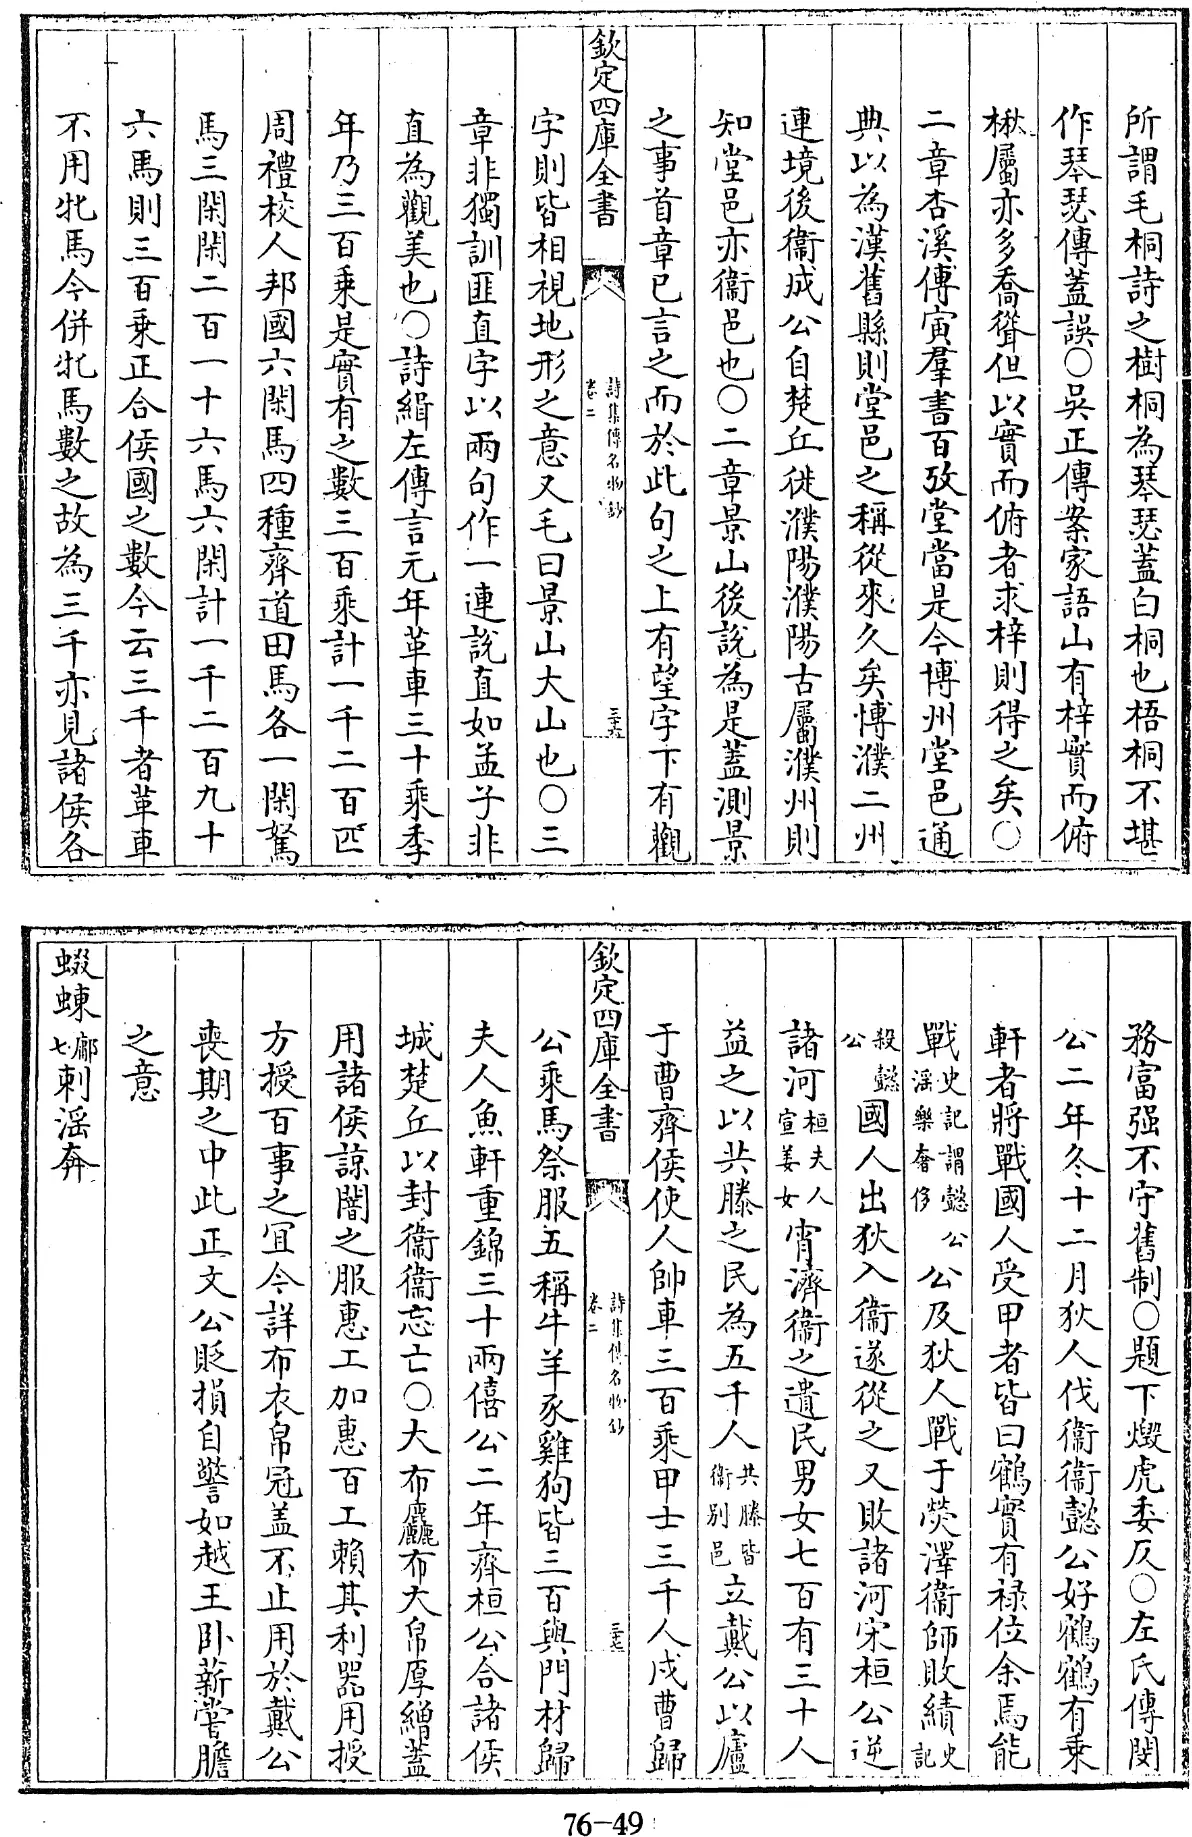 所謂毛桐詩之樹桐為琴瑟蓋白桐也梧桐不堪
作琴瑟傳蓋誤○吳正傳案家語山有梓實而俯
楸屬亦多喬聳但以實而俯者求梓則得之矣○
二章杏溪傅寅羣書百攷堂當是今博州堂邑通
典以為漢舊縣則堂邑之稱從來久矣博濮二州
連境後衞成公自楚丘徙濮陽濮陽古屬濮州則
知堂邑亦衞邑也○二章景山後說為是蓋測景
之事首章已言之而於此句之上有望字下有觀
欽定四庫全書
詩集傳名物鈔
卷二
三十六
字則皆相視地形之意又毛曰景山大山也○三
章非獨訓匪直字以兩句作一連說直如孟子非
直為觀美也○詩緝左傳言元年革車三十乘季
年乃三百乘是實有之數三百乘計一千二百匹
周禮校人邦國六閑馬四種齊道田馬各一閑駑
馬三閑閑二百一十六馬六閑計一千二百九十
六馬則三百乘正合侯國之數今云三千者革車
不用牝馬今併牝馬數之故為三千亦見諸侯各
務富强不守舊制○題下燬虎委反○左氏傳閔
公二年冬十二月狄人伐衞衞懿公好鶴鶴有乗
軒者將戰國人受甲者皆曰鶴實有祿位余焉能
戰史記謂懿公淫樂奢侈公及狄人戰于熒澤衞師敗績史記
殺懿公國人出狄入衞遂從之又敗諸河宋桓公逆
諸河桓夫人宣姜女宵濟衞之遺民男女七百有三十人
益之以共滕之民為五千人共滕皆衞别邑立戴公以廬
于曹齊侯使人帥車三百乘甲士三千人戍曹歸
欽定四庫全書
詩集傳名物鈔
卷二
三十七
公乘馬祭服五稱牛羊豕雞狗皆三百與門材歸
夫人魚軒重錦三十兩僖公二年齊桓公合諸侯
城楚丘以封衞衞忘亡○大布麤布大帛厚繒蓋
用諸侯諒闇之服惠工加惠百工賴其利器用授
方授百事之宜今詳布衣帛冠蓋不止用於戴公
喪期之中此正文公貶損自警如越王臥薪嘗膽
之意
蝃蝀鄘七刺淫奔